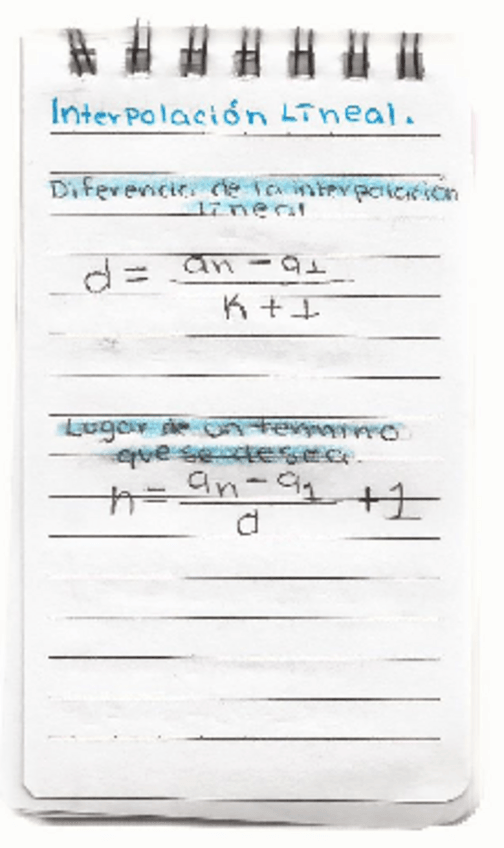 Interpolación Líneal.
Diferencia de la interpolación
líneal
d = an - a1 / K + 1
Lugar de un termino
que se desea.
n = an - a1 / d + 1